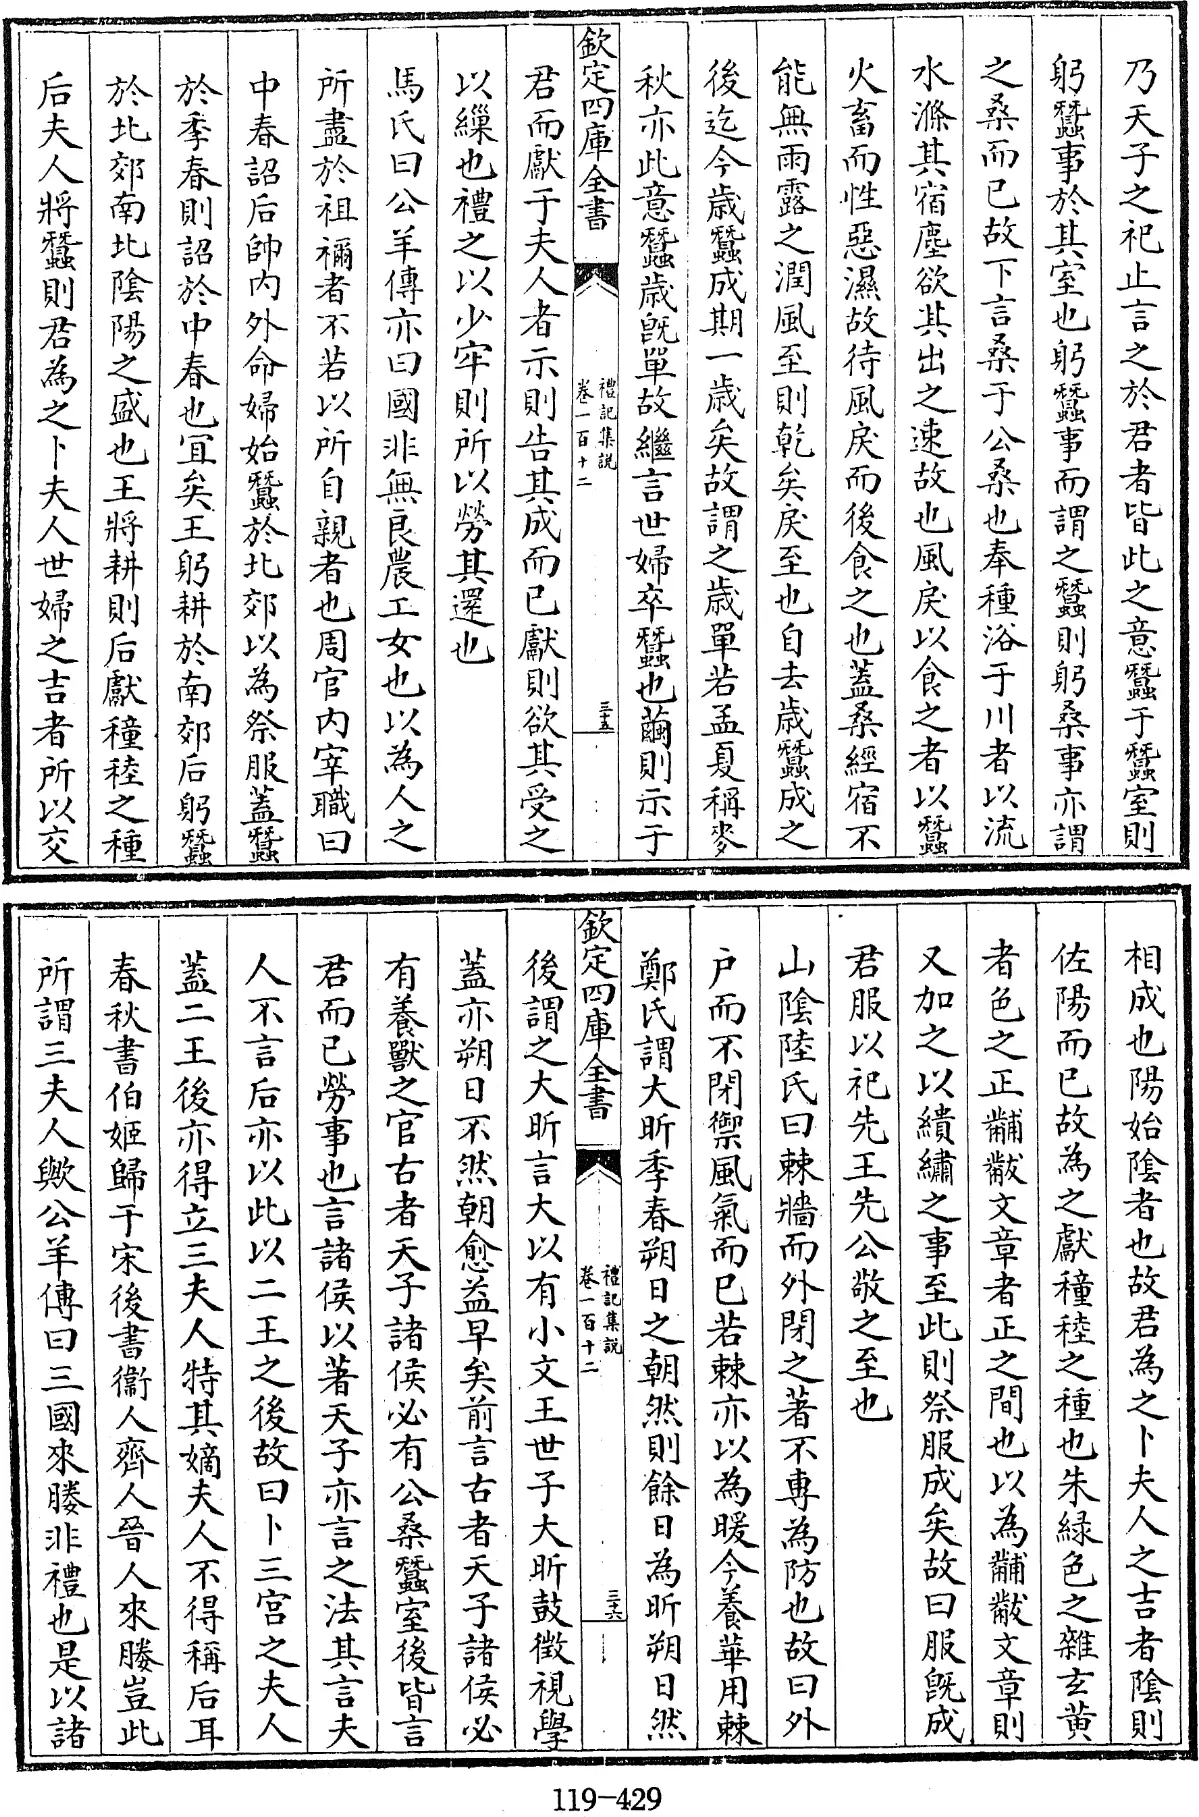 乃天子之祀止言之於君者皆此之意蠶于蠶室則
躬蠶事於其室也躬蠶事而謂之蠶則躬桑事亦謂
之桑而已故下言桑于公桑也奉種浴于川者以流
水滌其宿塵欲其出之速故也風戾以食之者以蠶
火畜而性惡濕故待風戾而後食之也蓋桑經宿不
能無雨露之潤風至則乾矣戾至也自去歳蠶成之
後迄今歳蠶成期一歳矣故謂之歳單若孟夏稱麥
秋亦此意蠶歳旣單故繼言世婦卒蠶也繭則示于
欽定四庫全書
禮記集説
卷一百十二
三十五
君而獻于夫人者示則告其成而已獻則欲其受之
以繅也禮之以少牢則所以勞其還也
馬氏曰公羊傳亦曰國非無良農工女也以為人之
所盡於祖禰者不若以所自親者也周官内宰職曰
中春詔后帥内外命婦始蠶於北郊以為祭服蓋蠶
於季春則詔於中春也宜矣王躬耕於南郊后躬蠶
於北郊南北陰陽之盛也王將耕則后獻穜稑之種
后夫人將蠶則君為之卜夫人世婦之吉者所以交
相成也陽始陰者也故君為之卜夫人之吉者陰則
佐陽而已故為之獻穜稑之種也朱緑色之雜玄黄
者色之正黼黻文章者正之間也以為黼黻文章則
又加之以繢繡之事至此則祭服成矣故曰服旣成
君服以祀先王先公敬之至也
山陰陸氏曰棘牆而外閉之著不專為防也故曰外
户而不閉禦風氣而已若棘亦以為暖今養華用棘
鄭氏謂大昕季春朔日之朝然則餘日為昕朔日然
欽定四庫全書
禮記集説
卷一百十二
三十六
後謂之大昕言大以有小文王世子大昕鼓徴視學
蓋亦朔日不然朝愈益早矣前言古者天子諸侯必
有養獸之官古者天子諸侯必有公桑蠶室後皆言
君而已勞事也言諸侯以著天子亦言之法其言夫
人不言后亦以此以二王之後故曰卜三宫之夫人
蓋二王後亦得立三夫人特其嫡夫人不得稱后耳
春秋書伯姬歸于宋後書衛人齊人晉人來媵豈此
所謂三夫人歟公羊傳曰三國來媵非禮也是以諸
119-429